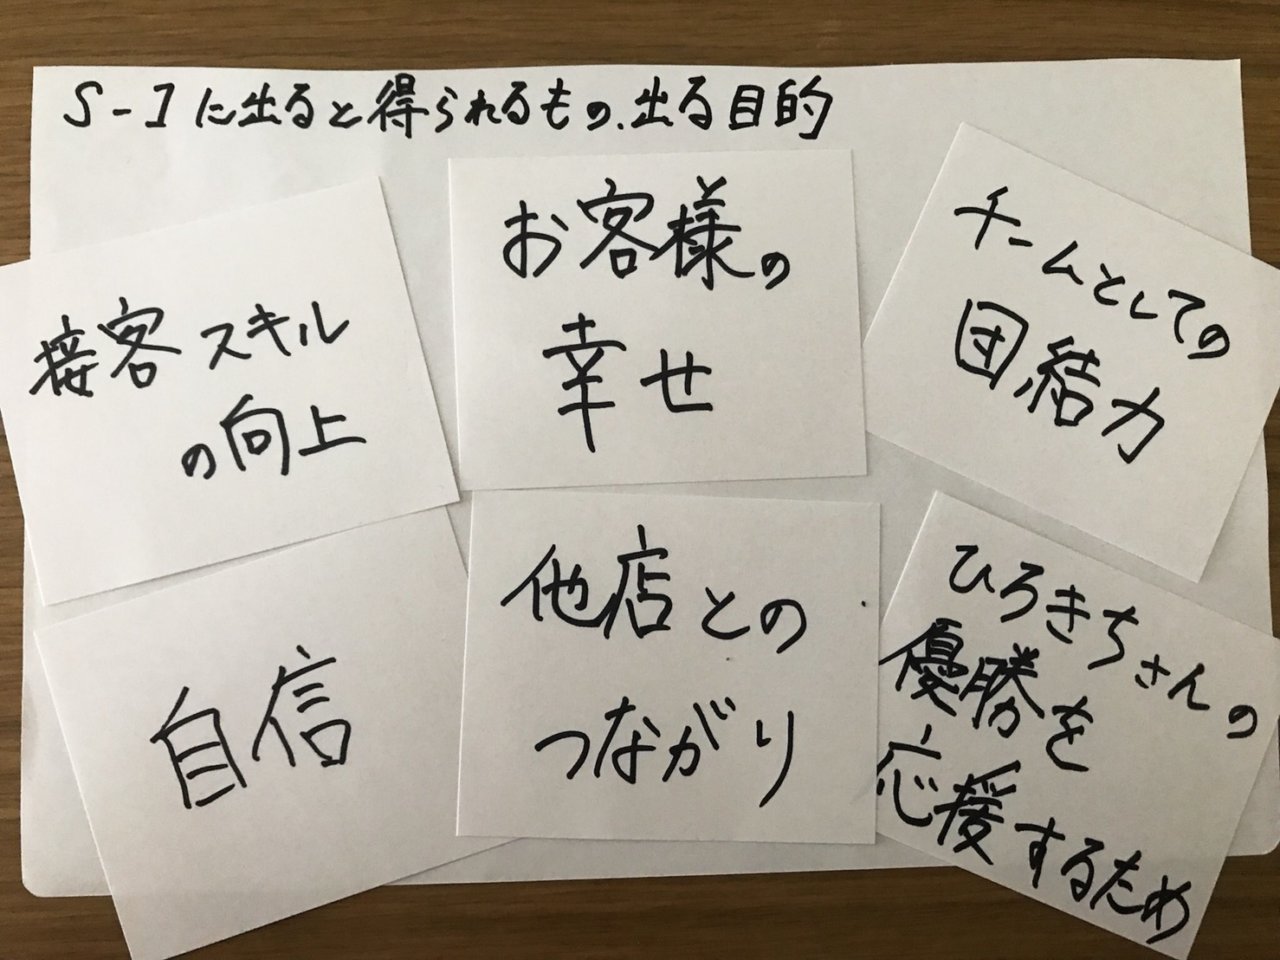 S-1に出ると得られるもの、出る目的
接客スキル
の向上
お客様の
幸せ
チームとしての
団結力
自信
他店との
つながり
ひろきちさんの
優勝を
応援するため